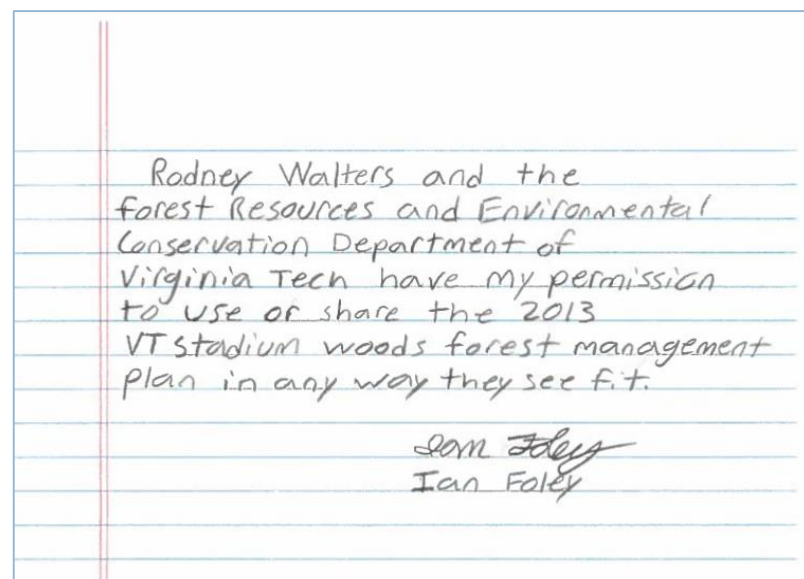 Rodney Walters and the
Forest Resources and Environmental
Conservation Department of
Virginia Tech have my permission
to use or share the 2013
VT Stadium woods forest management
plan in any way they see fit.
Ian Foley
Ian Foley